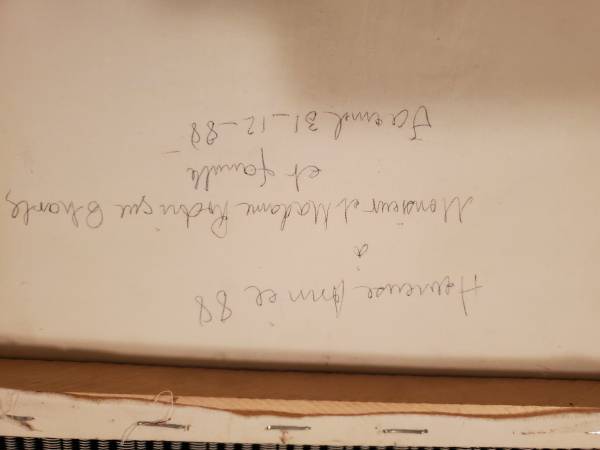 Heureuse Année 88
à
Monsieur et Madame Rodrigue Charles
et famille
Jacmel 31-12-88